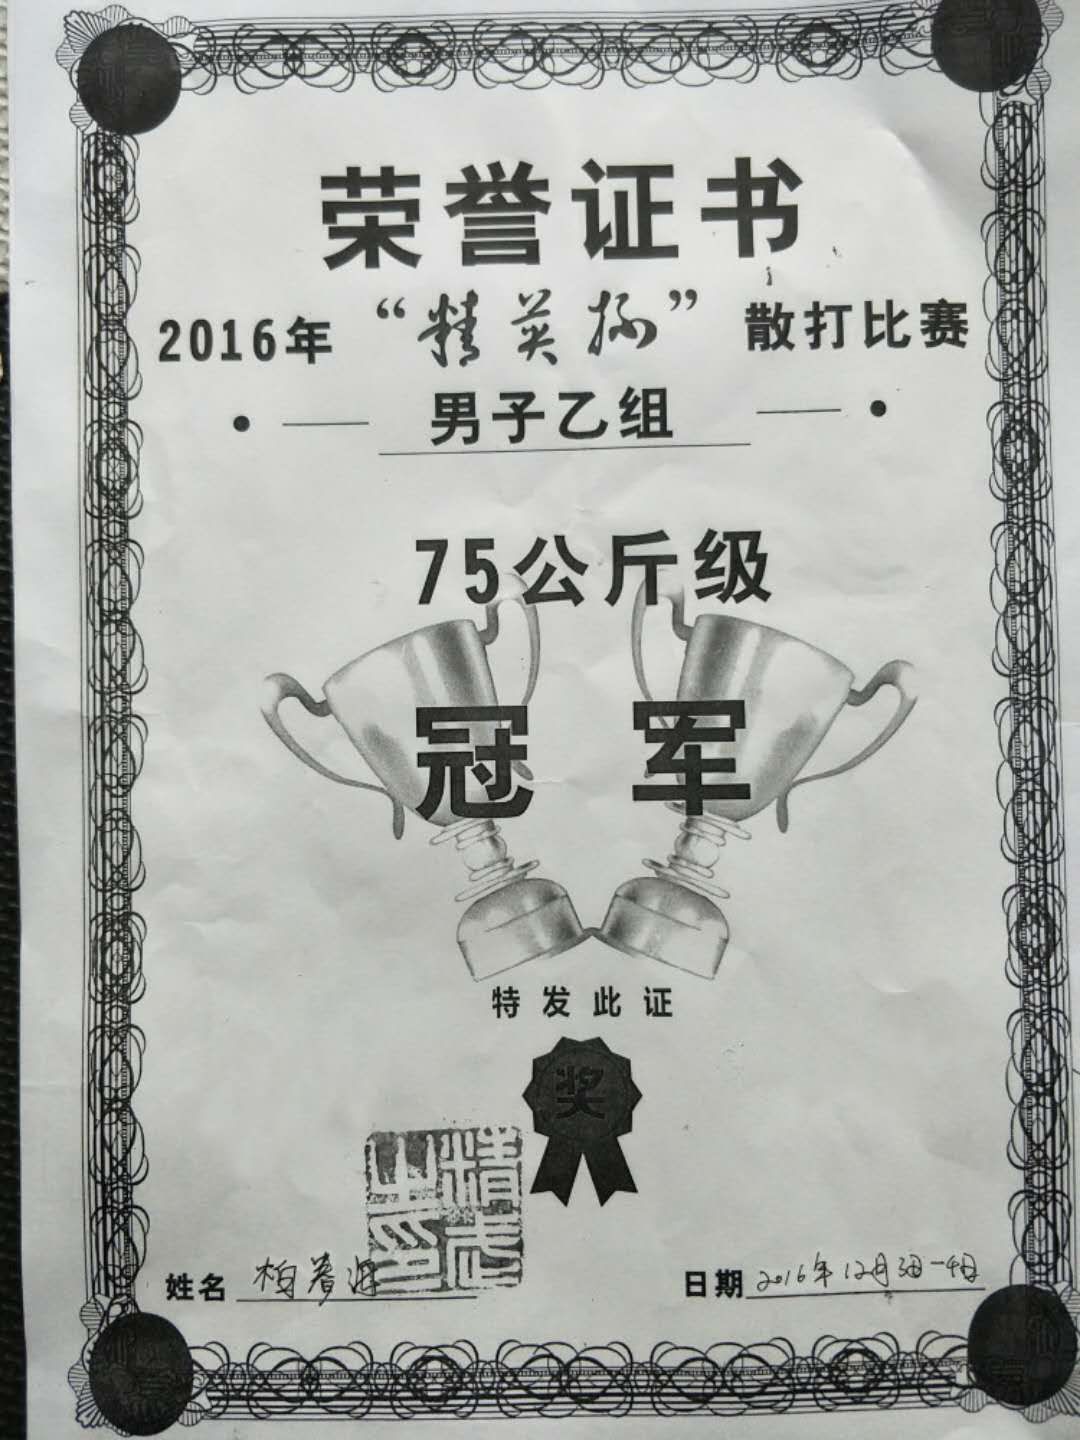 荣誉证书
2016年 “精英杯” 散打比赛
男子乙组
75公斤级
冠军
特发此证
奖
精武之印
姓名 柏春
日期 2016年12月3日—4日